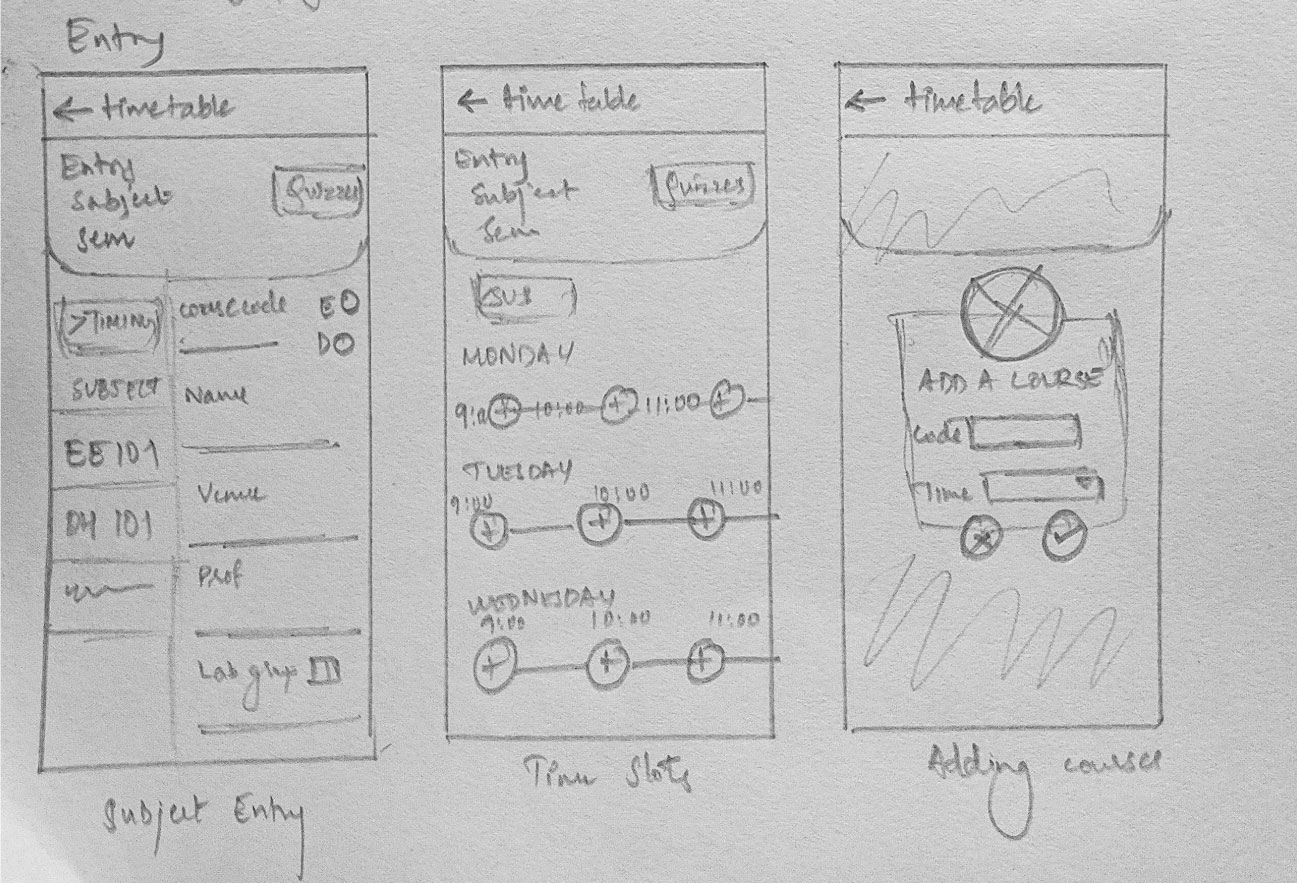 Entry
← timetable
Entry
Subject
Sem
Quizzes
>TIMING
SUBJECT
EE 101
DH 101
course code E
D
Name
Venue
Prof
Lab grup
Subject Entry
← time table
Entry
Subject
Sem
Quizzes
<SUB
MONDAY
9:0 + 10:00 + 11:00 +
TUESDAY
9:00 10:00 11:00
+ + +
WEDNESDAY
9:00 10:00 11:00
+ + +
Time Slots
← timetable
ADD A COURSE
Code
Time
Adding course